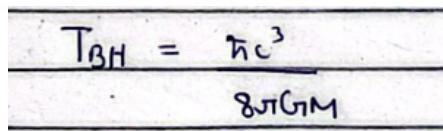 T_BH = ħc³ / 8πGM